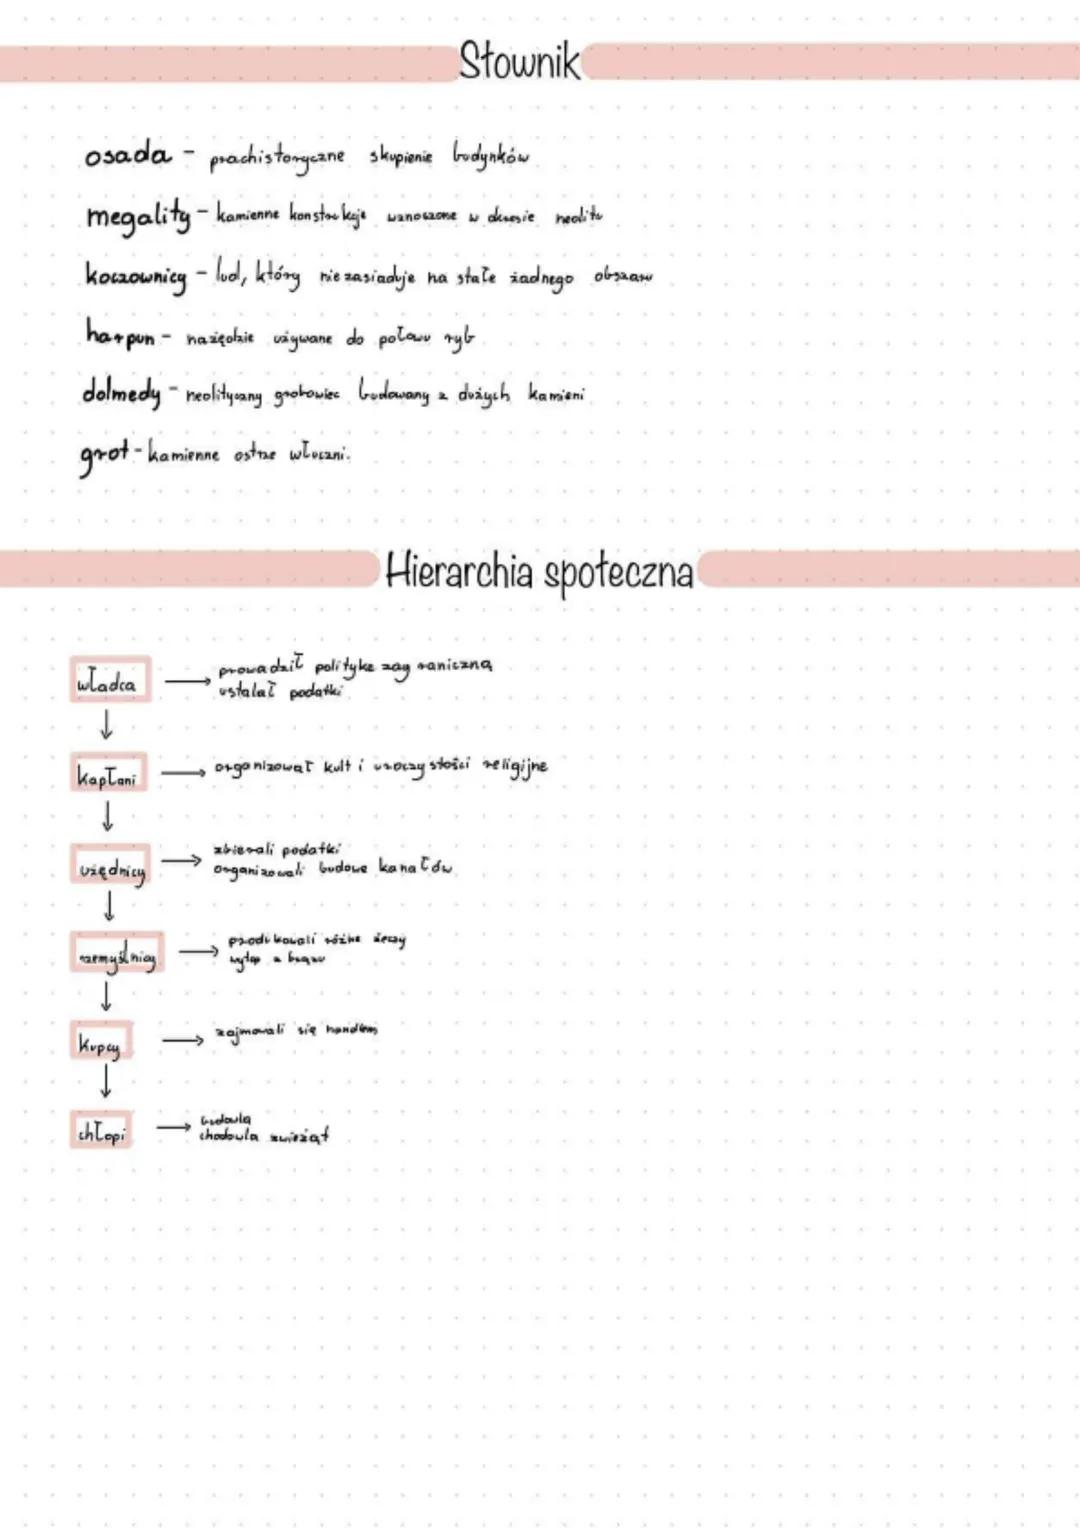 Słownik
osada - prachistoryczne skupienie budynków
megality - kamienne konstrukcje wznoszone w okresie neolitu
koczownicy - lud, który nie zasiaduje na stałe żadnego obszaru
harpun - nażędzie używane do połowu ryb
dolmedy - neolityczny grobowiec budowany z dużych kamieni
grot - kamienne ostrze włuczni.
Hierarchia społeczna
władca → prowadził polityke zagraniczną
ustalał podatki
↓
kapłani → organizował kult i uroczystości religijne
↓
użędnicy → zbierali podatki
organizowali budowe kanałów
↓
rzemyślnicy → produkowali różne żeczy
wytop z brązu
↓
kupcy → zajmowali się handlem
↓
chłopi → budowla
chodowla zwieżąt